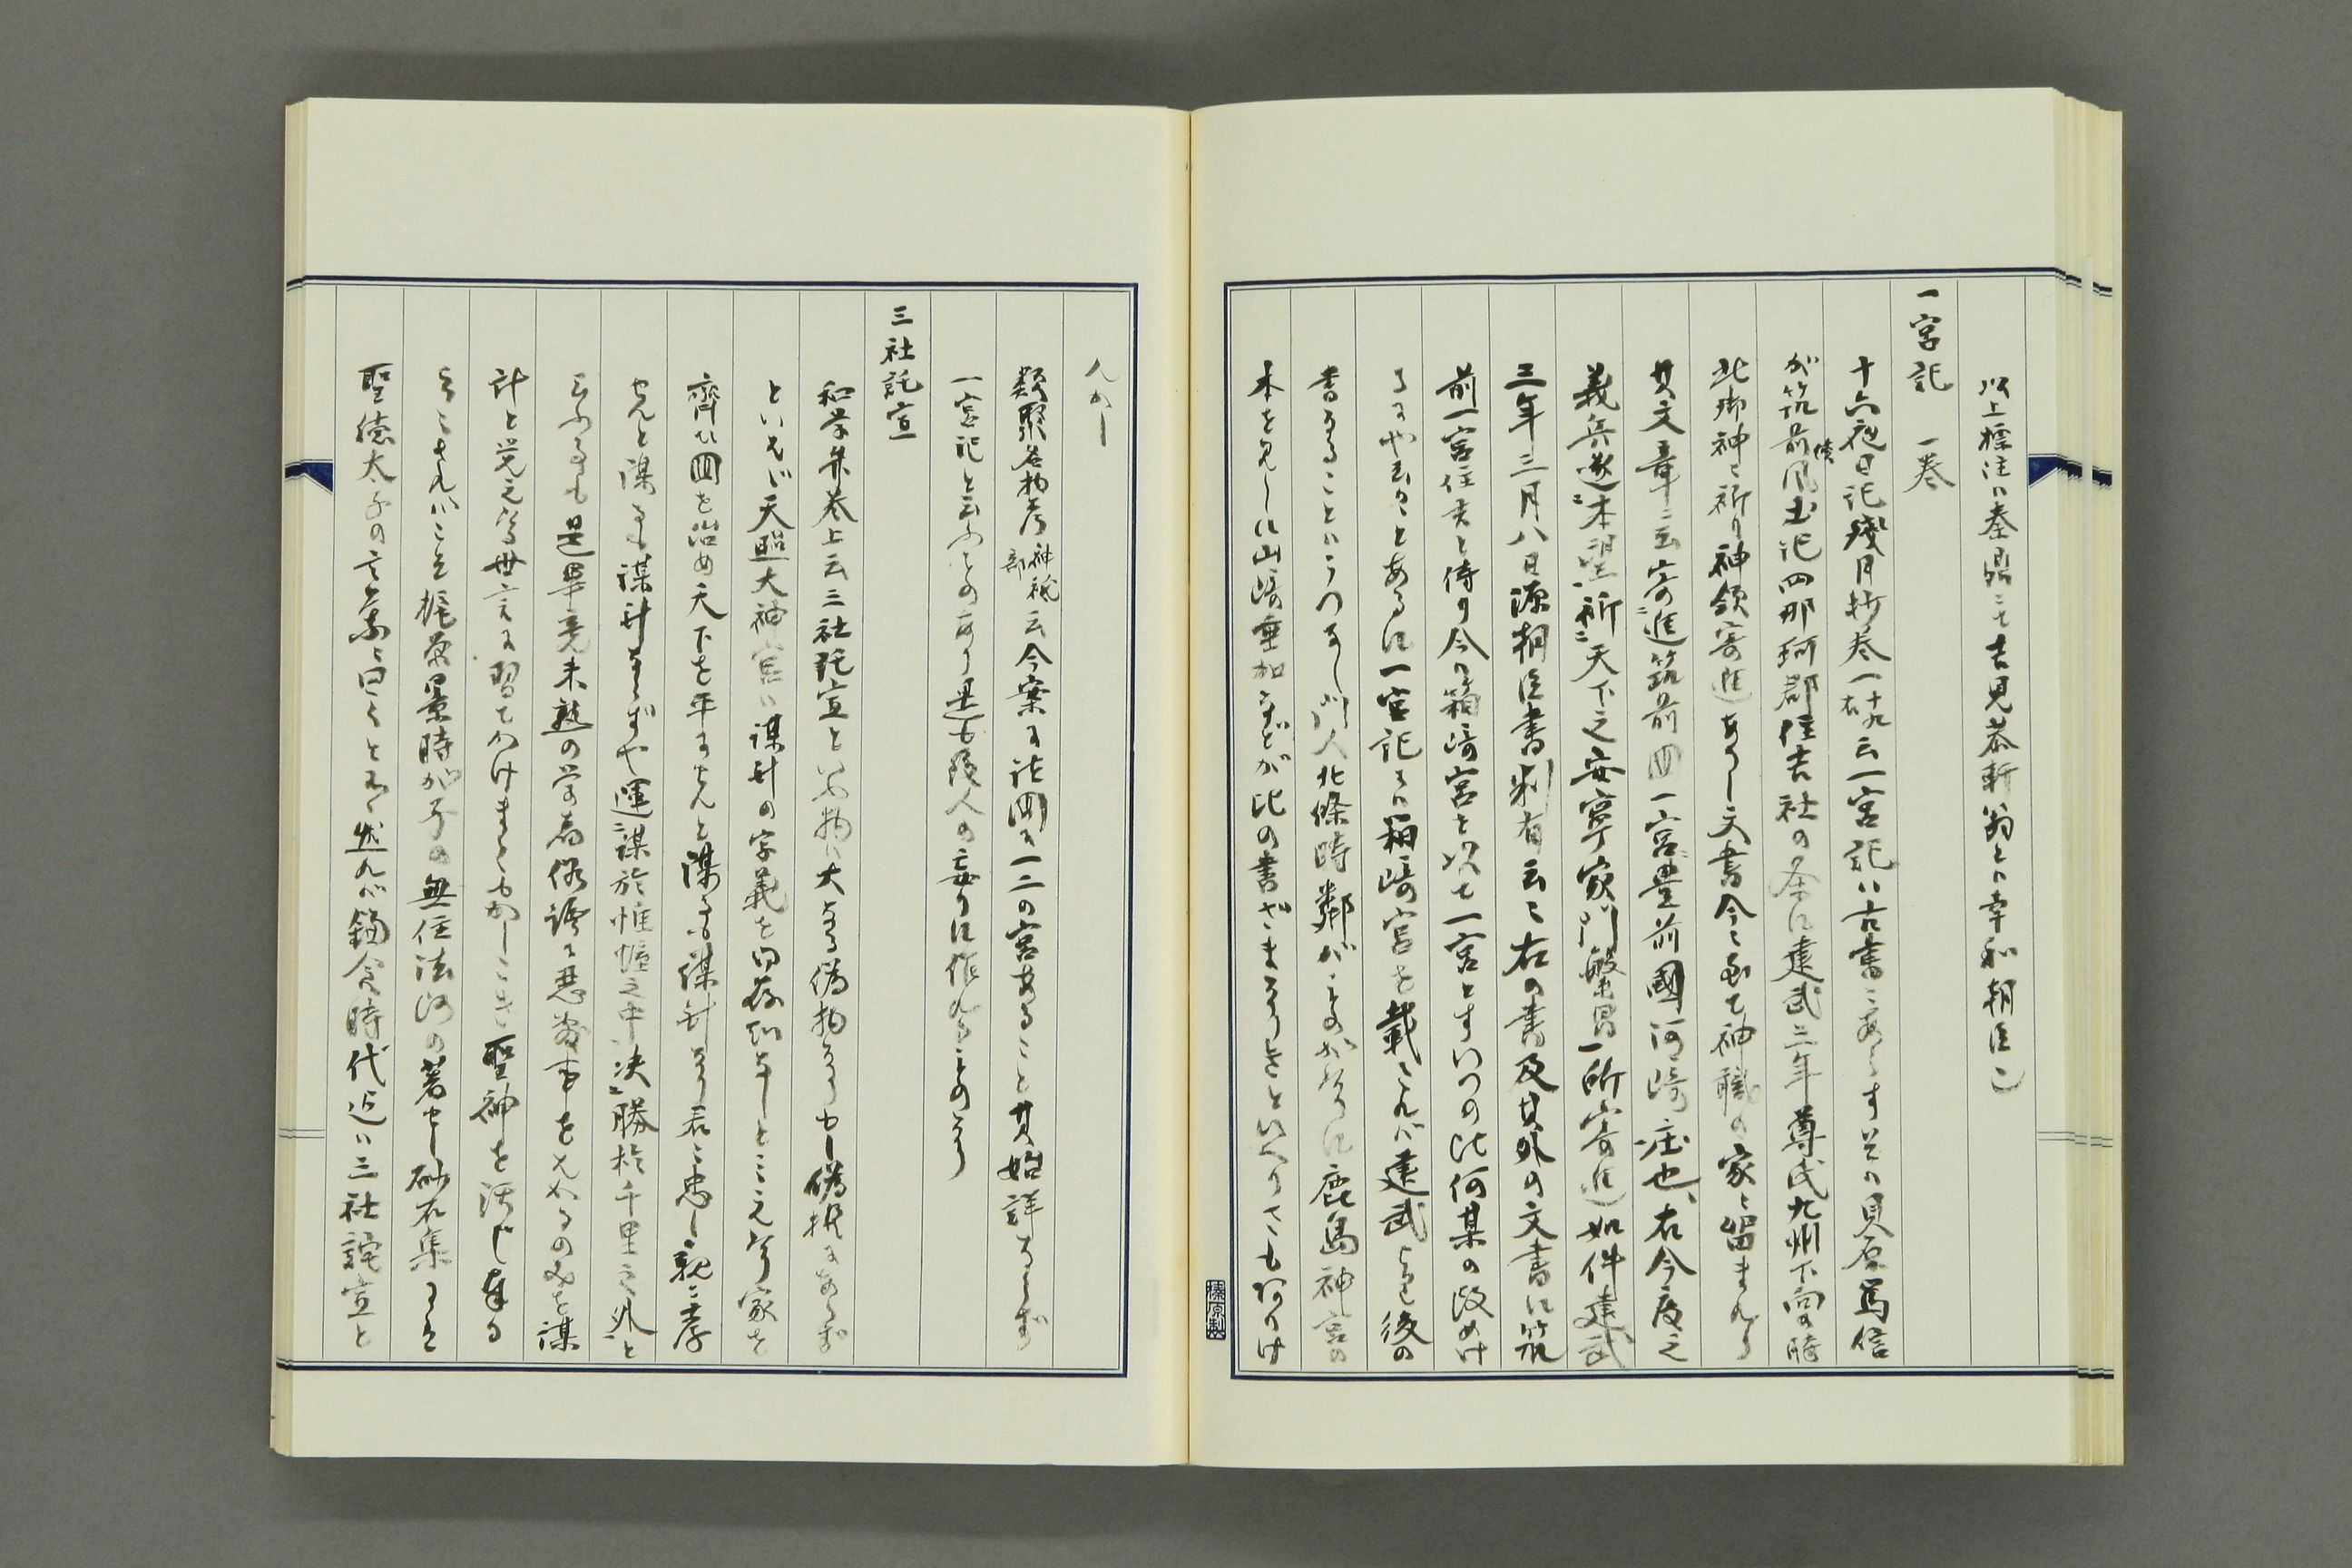 以上標注ハ秦鼎ニて吉見恭軒翁とハ幸和朝臣
一宮記　一巻
十六夜日記残月抄巻一十九右云一宮記ハ古書にあらすそハ貝原篤信
が筑前續風土記四那珂郡住吉社の条に建武三年尊氏九州下向の時
此御神に祈り神領寄進ありし文書今に至て神職の家に留まれり
其文章ニ云寄進筑前国一宮豊前國河崎庄也、右今度之
義兵遂本望祈天下之安寧家門繁昌一所寄進如件建武
三年三月八日源朝臣書判有云々右の書及其外の文書に筑
前一宮住吉と侍り今ハ箱崎宮を以て一宮とすいつの比何某の改めけ
るにや云々とあるに一宮記にハ箱崎宮を載これバ建武より後の
書なることハうつなし門人北條時鄰が鹿島神宮の
本を見しに山崎垂加などが比の書ざまなりきといへりさもありけ
んかし
類聚名物考神祇部云今案に諸国に一二の宮あること其始詳ならず
一宮記と云ふもの有り是も後人の妄りに作れるものなり
三社託宣
和学弁巻上云三社託宣といふ物ハ大なる偽物なり
といへど天照大神宮ハ謀計の字義を
齊ひ国を治め天下を平にせんと謀るも謀計なり君に忠し親に孝
せんと謀るも謀計ならずや運謀於帷幄之中決勝於千里之外と
云ふるも是畢竟未熟の学者俗謂る悪敷事をはかるのみを謀
計と覚え
云こされバこそ梶原景時が子の無住法師の著せし砂石集にも
聖徳太子の言葉に曰くとあり然れバ鎌倉時代迄ハ三社託宣と
榛原製